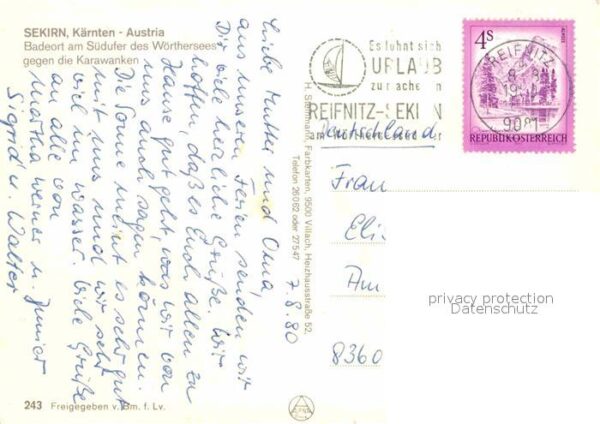 SEKIRN, Kärnten - Austria
Badeort am Südufer des Wörthersees
gegen die Karawanken
7.8.80
Liebe Mutter und Oma,
aus unseren Ferien senden wir
Dir viele herzliche Grüße. Wir
hoffen, daß es Euch allen zu
Hause gut geht, was wir von
uns auch sagen können.
Die Sonne meint es sehr gut
mit uns und wir sind
viel im Wasser. Viele Grüße
an alle von
Martha Werner u. Junior
Sigrid u. Walter
243 Freigegeben v. Bm. f. Lv.
H. Steinmann, Farbkarten, 9500 Villach, Heizhausstraße 52,
Telefon 26062 oder 27547
Es lohnt sich
URLAUB
zu machen in
REIFNITZ-SEKIRN
am Wörthersee
REIFNITZ
9081
4S
REPUBLIK ÖSTERREICH
Deutschland
Frau
Am
8360
privacy protection
Datenschutz